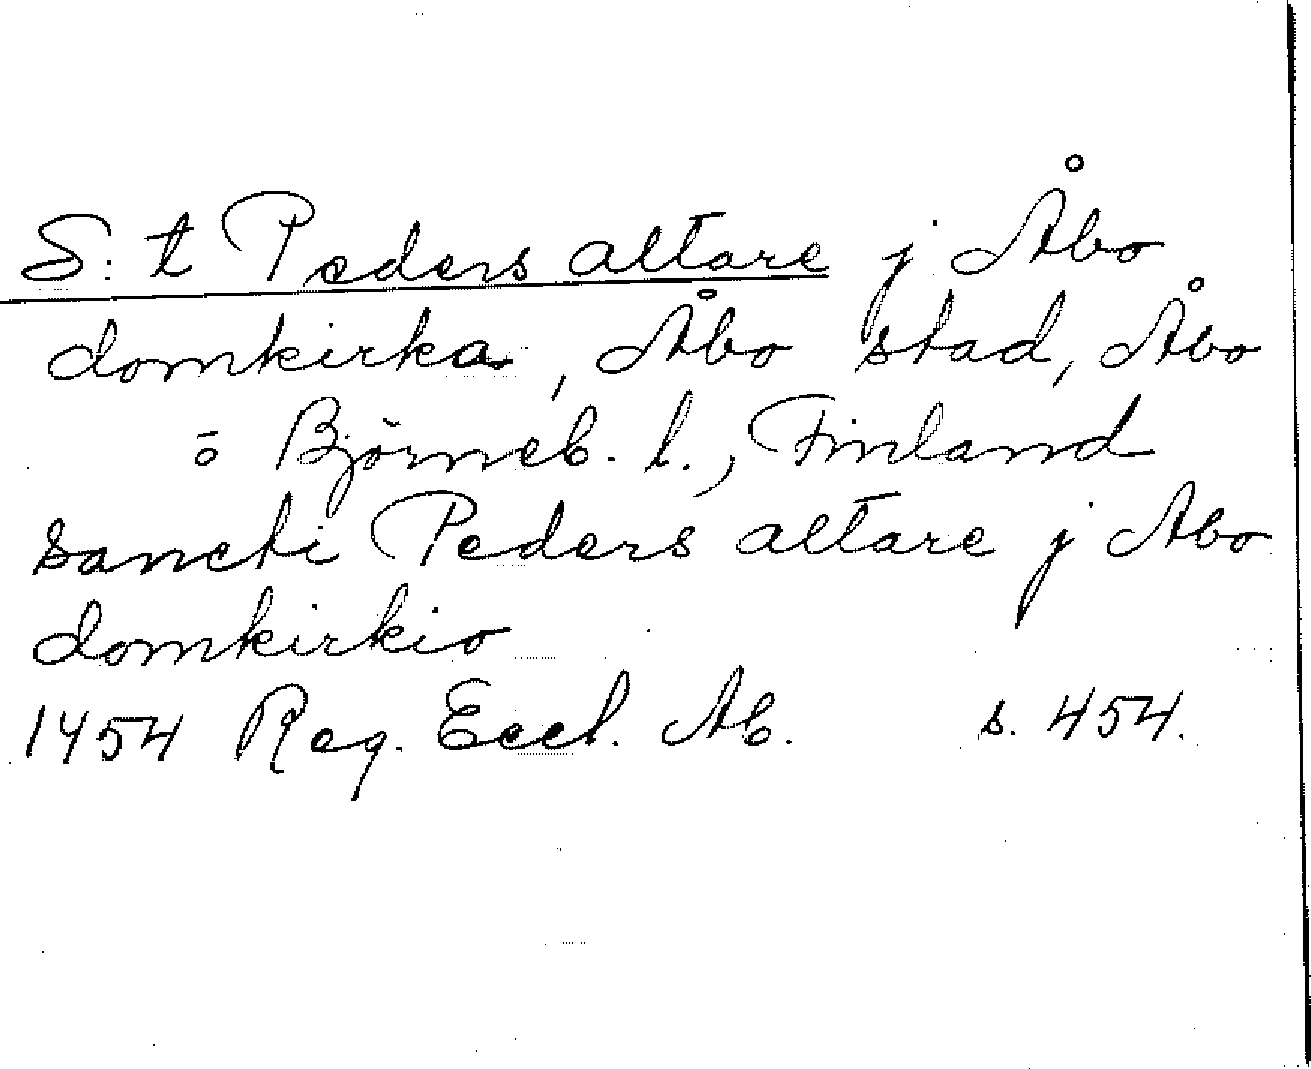 S:t Peders altare j Åbo
domkirka, Åbo stad, Åbo
o Björneb. l., Finland
sancti Peders altare j Abo
domkirkio
1454 Reg. Eccl. Ab. s. 454.